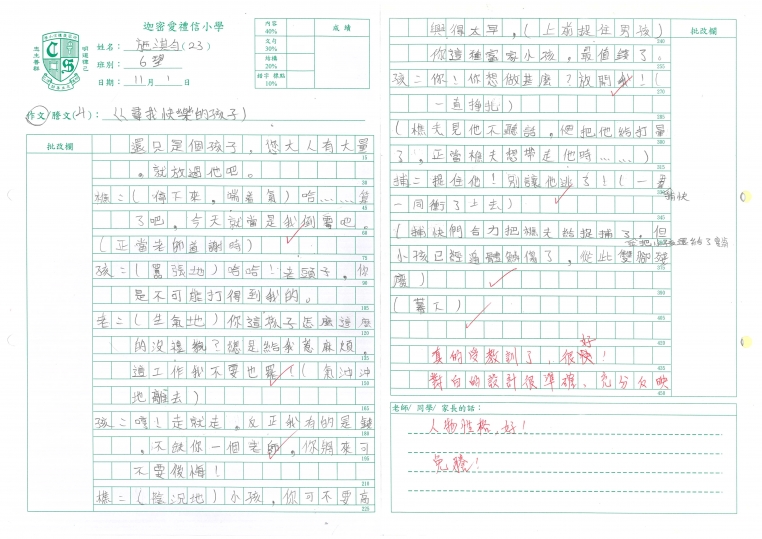 迦密愛禮信小學
姓名：施淇勻(23)
班別：6望
日期：11月1日
內容 40%
文句 30%
結構 20%
錯字 標點 10%
成績
作文/謄文(4)：《尋找快樂的孩子》
批改欄
還只是個孩子，您大人有大量
，就放過他吧。
樵：(停下來，喘着氣)哈……算
了吧，今天就當是我倒霉吧。
(正當老師道謝時)
孩：(囂張地)哈哈！老頭子，你
是不可能打得到我的。
老：(生氣地)你這孩子怎麼這麼
的沒禮貌？總是給我惹麻煩，
這工作我不要也罷！(氣沖沖
地離去)
孩：哼！走就走，反正我有的是錢
，不缺你一個老師，你將來可
不要後悔！
樵：(陰沉地)小孩，你可不要高
批改欄
興得太早，(上前捉住男孩)
你這種富家小孩，最值錢了。
孩：你！你想做甚麼？放開我！(
一直掙扎)
(樵夫見他不聽話，便把他給打暈
了，正當樵夫想帶走他時……)
捕：捉住他！別讓他逃了！(一眾
捕快
一同衝了上去)
(捕快們合力把樵夫給捉捕了，但
小孩已經
了，從此雙腳殘
廢)
(幕下)
真的受教訓了，很好！
對白的設計很準確，充分反映
老師/ 同學/ 家長的話：
人物性格，好！
免謄！